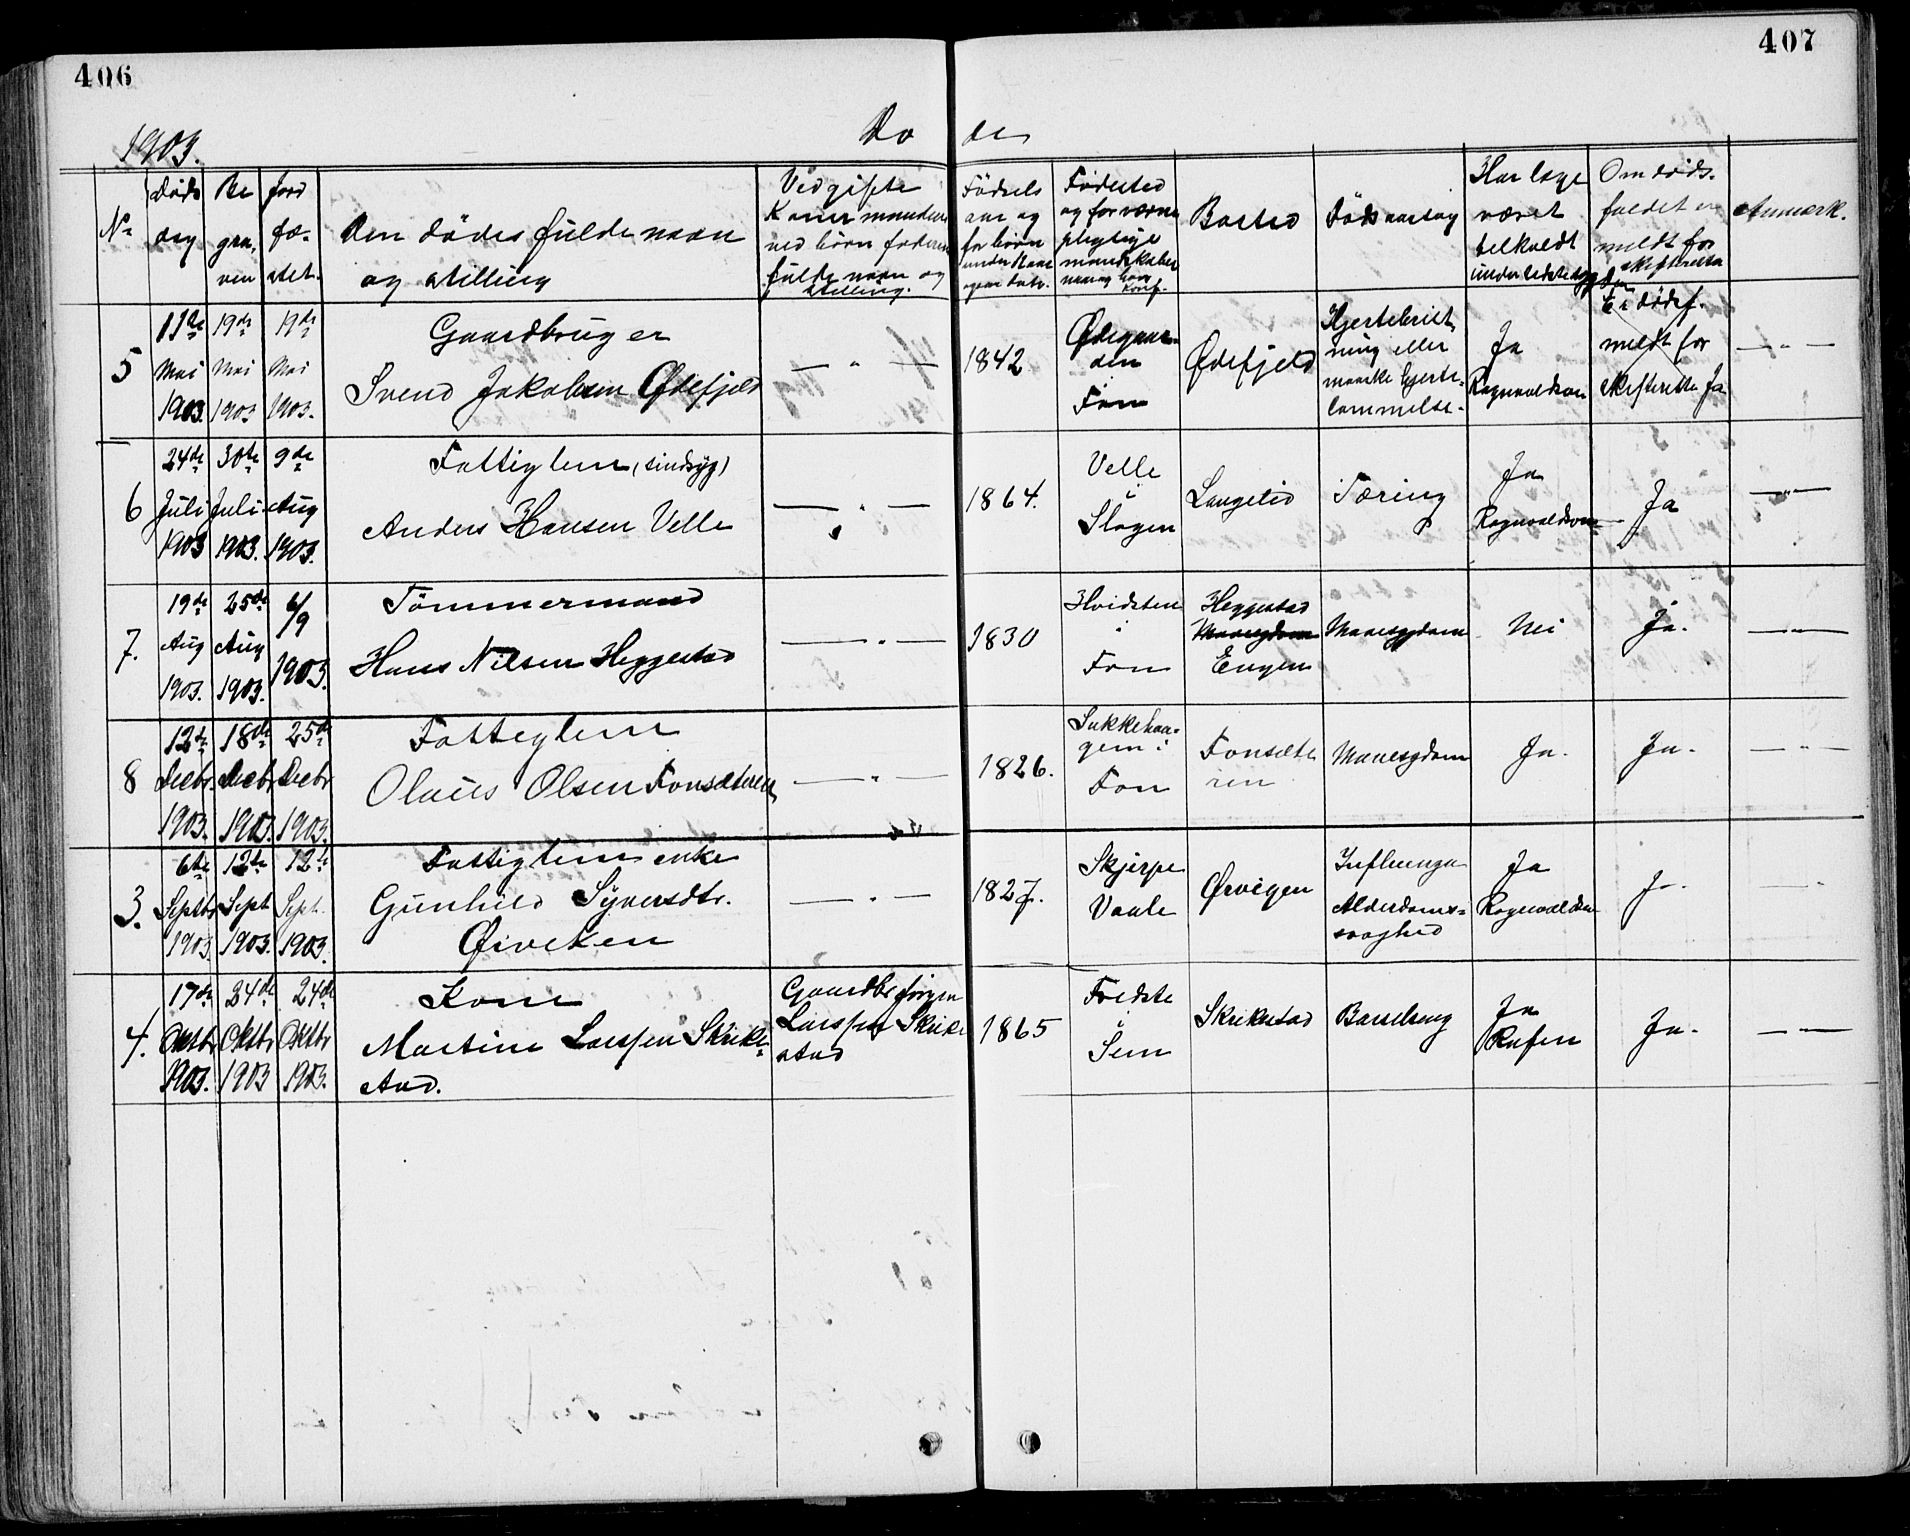 406
407
1903.
Dö de
No
Döds dag
Be gra, ven
Jord fæ- stet.
Den dödes fulde navn og stilling
Ved gifte Koner mandens ved börn faderens fulde navn og stilling.
Födsels aar og for börn under
Födested og for værne pligtige mandskaber
Bosted
Dödsaarsag
Har læge været tilkaldt
Om döds- faldet er meldt for skifteretten
Anmærk.
5
11te Mai 1903
19de Mai 1903
19de Mai 1903.
Gaardbruger
Svend Jakobsen Ødefjeld
— " —
1842
Ødegaar- den Fon
Ødefjeld
Hjertebrist, ning eller maaske hjerte- lammelse.
Ja Ragnvaldson
Er dödsf. meldt for Skifteretten Ja
— " —
6
24de Juli 1903
30te Juli 1903.
9de Aug 1903.
Fattiglem (sindsyg)
Anders Hansen Velle
— " —
1864.
Velle i Slagen
Langelid
Tæring
Ja Ragnvaldson
Ja
— " —
7.
19de Aug 1903.
25de Aug 1903.
6/9 1903.
Tömmermand
Hans Nilsen Heggestad
— " —
1830
Hvidsten i Fon
Heggestad Mavesygdom Engen
Mavesygdom
Nei
Ja.
— " —
8
12te Decbr. 1903.
18de Decbr 1903.
25de Decbr 1903.
Fattiglem
Olaus Olsen Fonsæteren
— " —
1826.
Fon
Fonsæte ren
Mavesygdom
Ja.
Ja.
— " —
3.
6te Septbr 1903
12te Sept 1903.
12te Sept. 1903.
Fattiglem enke
Gunhild Syversdtr.
Øiveken
— " —
1827.
Skjerpe Vaale
Ørvigen
Influenza Alderdoms- svaghed
Ja Ragnvaldsen
Ja.
— " —
4.
17de Oktbr 1903.
24de Oktbr 1903
24de Oktbr 1903.
Kone
Martine Larssen Skrike-
stad.
Gaardbr Jörgen Larssen Skrike stad
1865
Fredste i Sem
Skrikestad
Barselseng
Ja Refen
Ja.
— " —